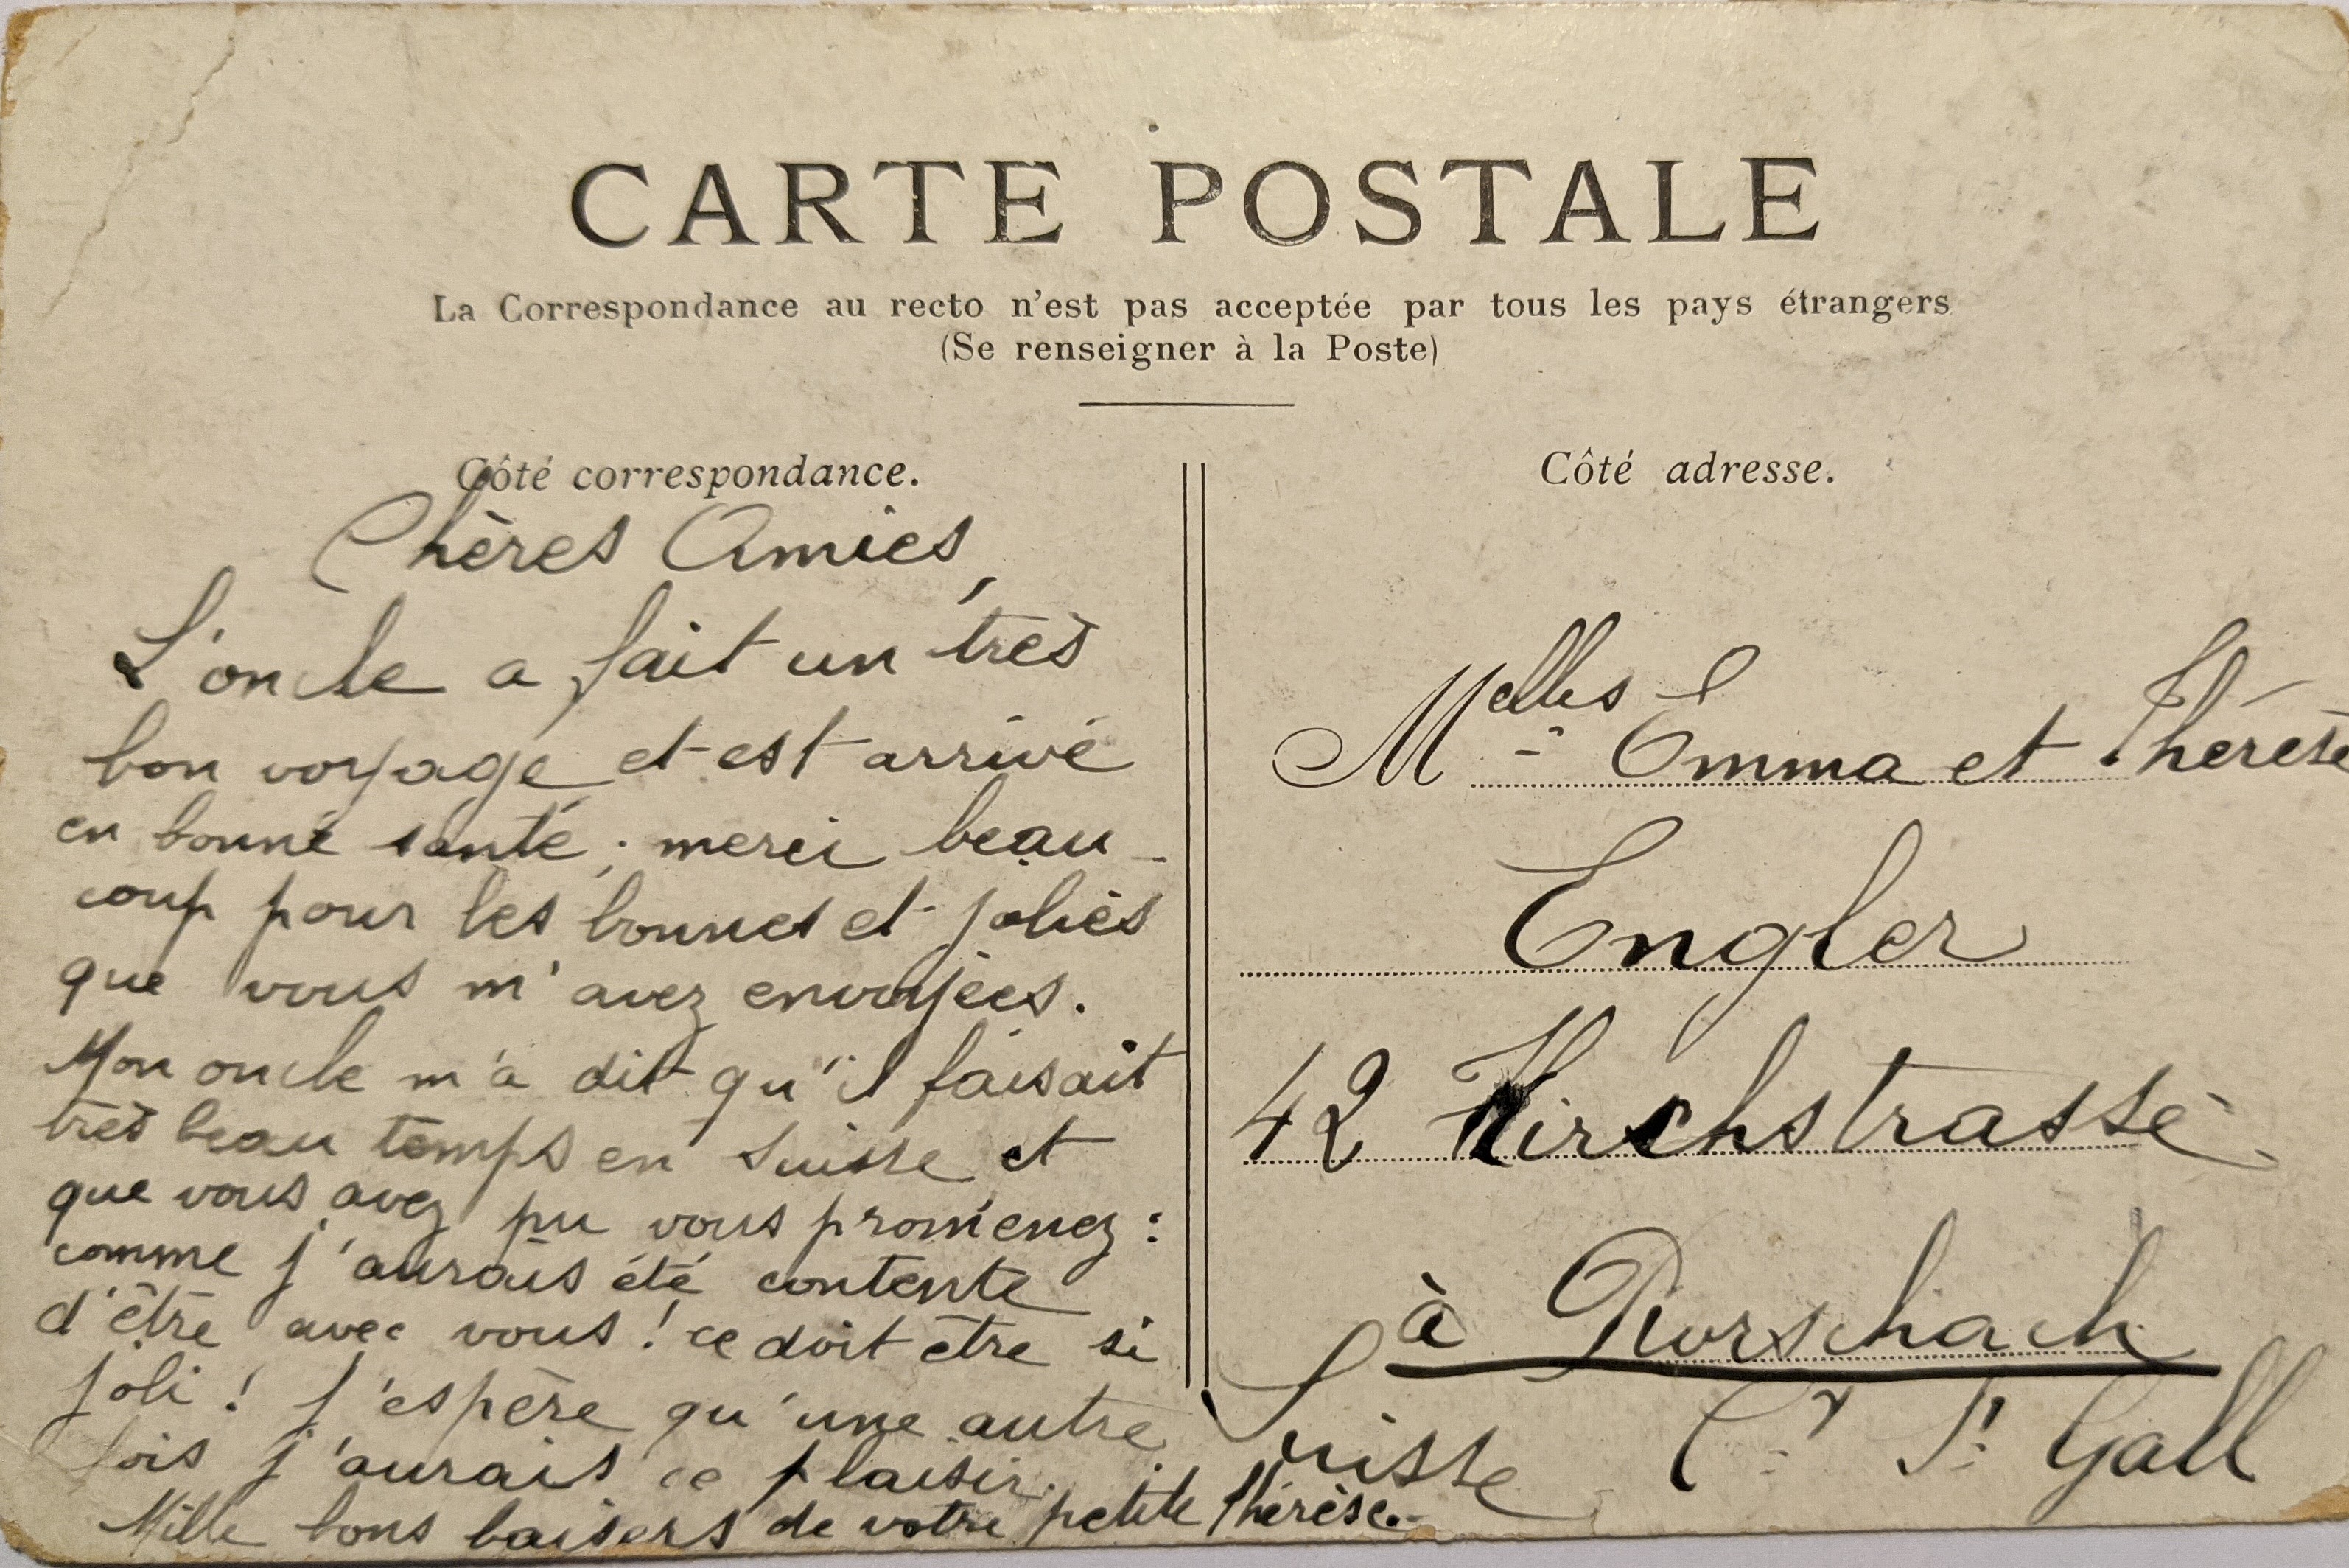 CARTE POSTALE
La Correspondance au recto n'est pas acceptée par tous les pays étrangers
(Se renseigner à la Poste)
Côté correspondance.
Chères Amies,
L'oncle a fait un très
bon voyage et est arrivé
en bonne santé ; merci beau-
coup pour les bonnes et jolies
que vous m'avez envoyées.
Mon oncle m'a dit qu'il faisait
très beau temps en Suisse et
que vous avez pu vous promenez :
comme j'aurais été contente
d'être avec vous ! ce doit être si
joli ! J'espère qu'une autre
fois j'aurais ce plaisir.
Mille bons baisers de votre petite Thérèse.
Côté adresse.
Melles Emma et Thérèse
Engler
42 Kirchstrasse
à Rorschach
Suisse Ct St Gall